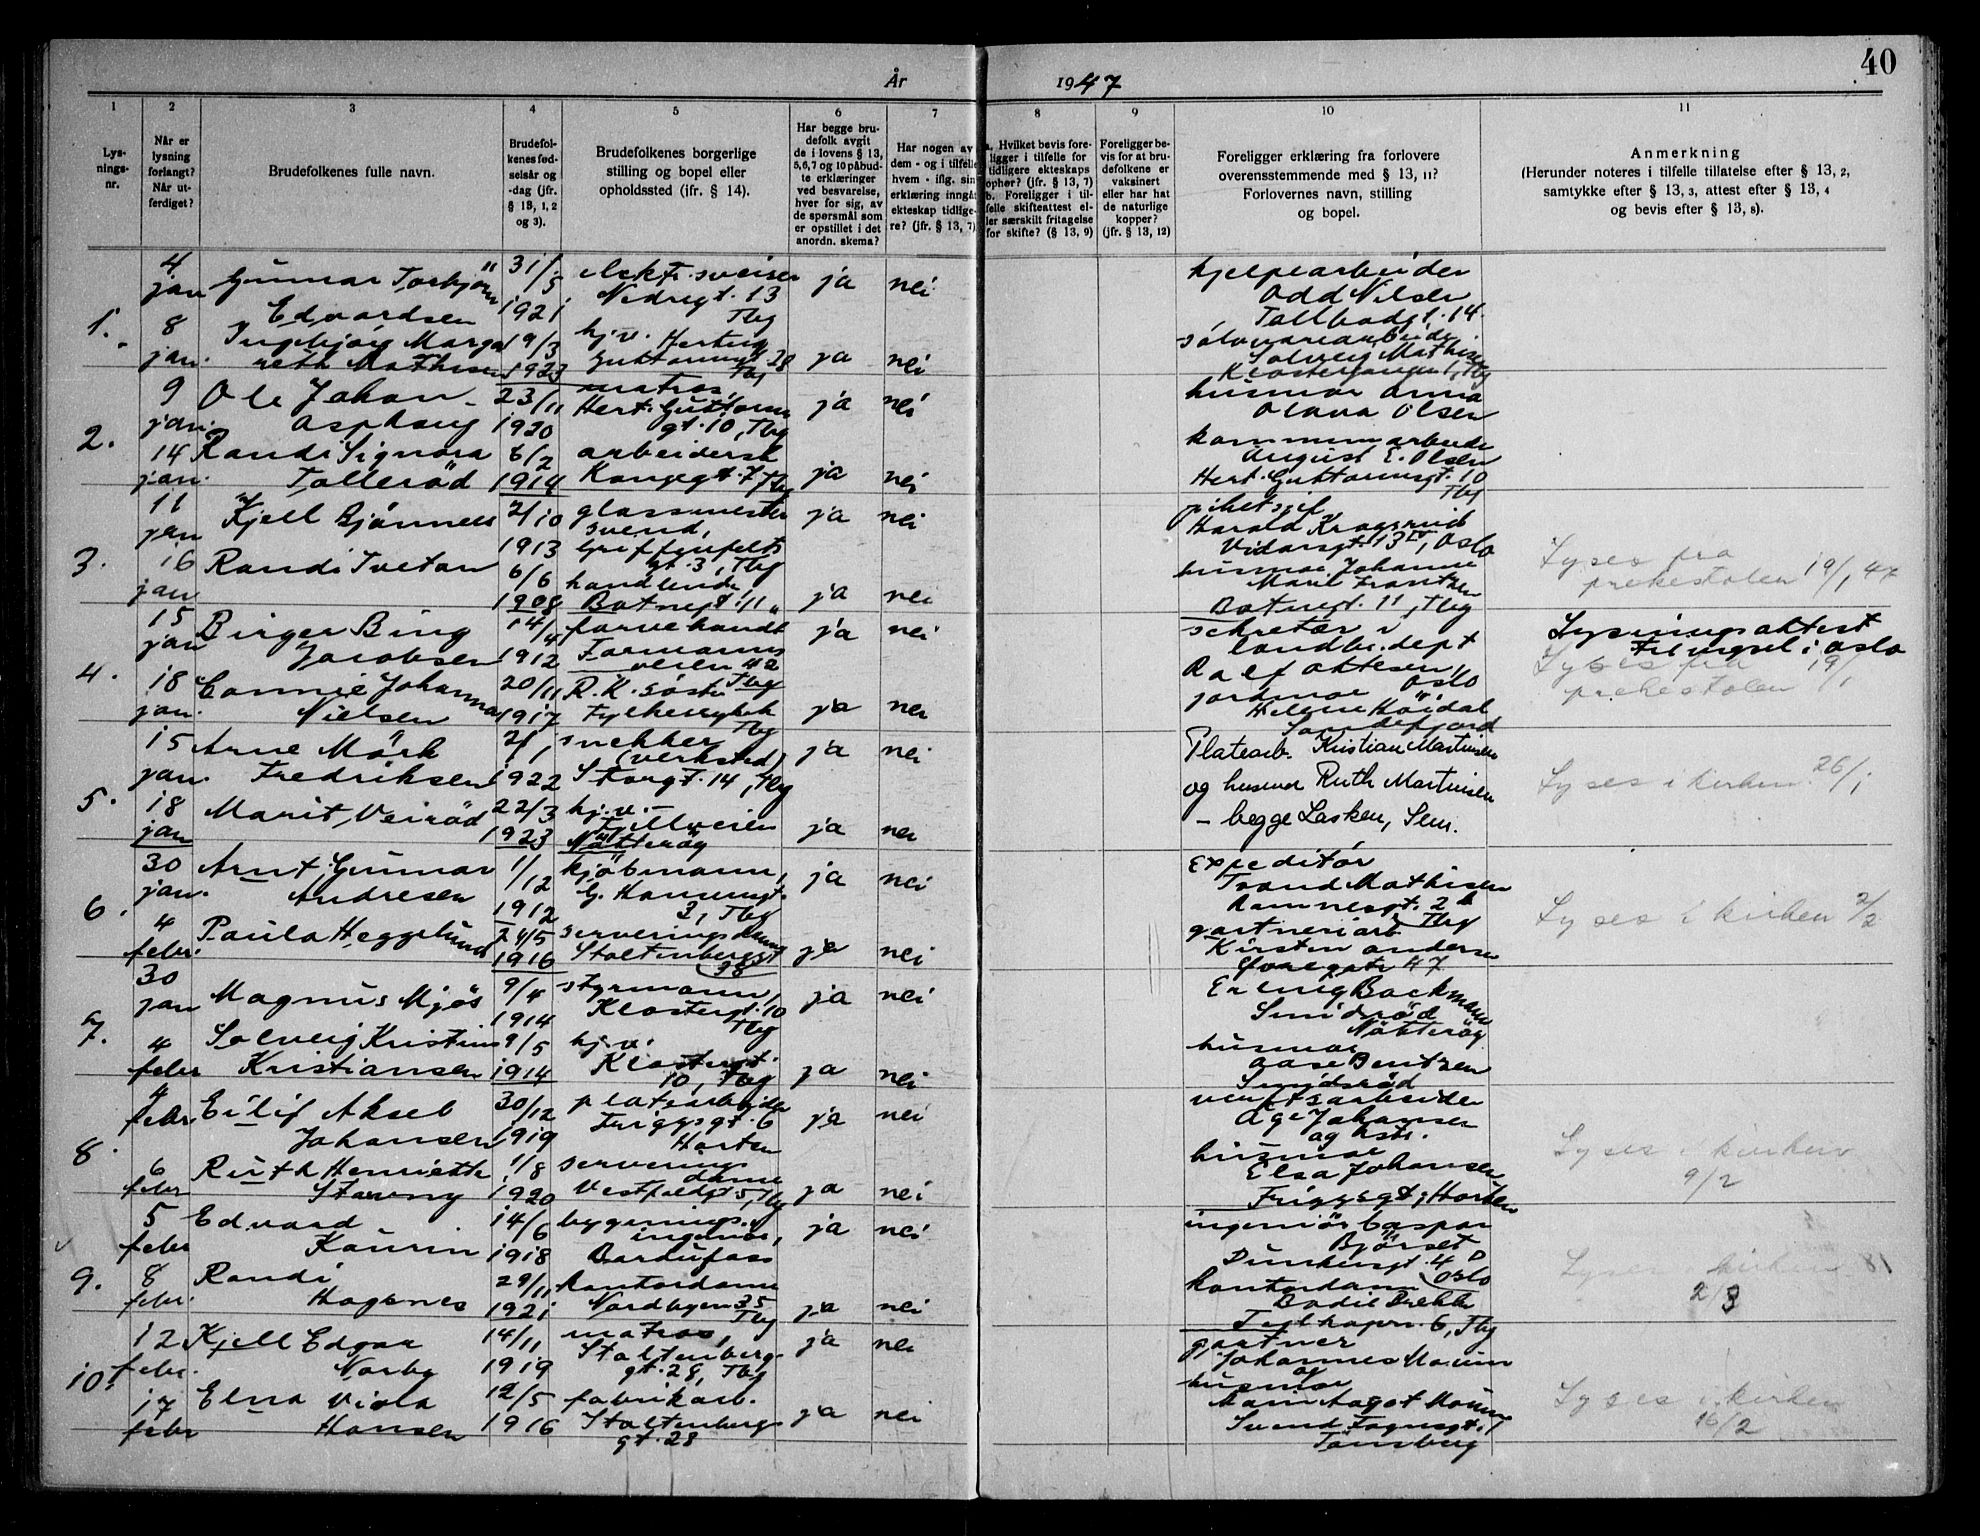 40
År 1947
1 2 3 4 5 6 7 8 9 10 11
Lys-
nings-
nr.
Når er
lysning
forlangt?
Når ut-
ferdiget?
Brudefolkenes fulle navn.
Brudefol-
kenes fød-
selsår og
-dag (jfr.
§ 13, 1, 2
og 3).
Brudefolkenes borgerlige
stilling og bopel eller
opholdssted (jfr. § 14).
Har begge bru-
defolk avgit
de i lovens § 13,
5,6,7 og 10 påbud-
te erklæringer
ved besvarelse,
hver for sig, av
de spørsmål som
er opstillet i det
anordn. skema?
Har nogen av
dem - og i tilfelle
hvem - iflg. sin
erklæring inngåt
ekteskap tidlige-
re? (jfr. § 13, 7)
a. Hvilket bevis fore-
ligger i tilfelle for
tidligere ekteskaps
ophør? (jfr. § 13, 7)
b. Foreligger i til-
felle skifteattest el-
ler særskilt fritagelse
for skifte? (§ 13, 9)
Foreligger be-
vis for at bru-
defolkene er
vaksinert
eller har hat
de naturlige
kopper?
(jfr. § 13, 12)
Foreligger erklæring fra forlovere
overensstemmende med § 13, 11?
Forlovernes navn, stilling
og bopel.
Anmerkning
(Herunder noteres i tilfelle tillatelse efter § 13, 2,
samtykke efter § 13, 3, attest efter § 13, 4
og bevis efter § 13, 8).
1.
4 jan Gunnar Torbjörn
Edvardsen
31/5 1921
elektr. sveiser
Nedregt. 13
Tbg
ja nei
hjelpearbeider
Odd Nilsen
Tollbodgt. 14
8 jan. Ingebjörg Marga
reth Mathisen
19/3 1923
hj.v. Hertug
Guttormsgt. 28
Tbg
ja nei
sølvvarearbeider
Solveig Mathisen
Tbg
2.
9 jan. Ole Johan
Asphaug
23/11 1920
matros,
Hert. Guttorms
gt. 10, Tbg
ja nei
husmor Anna
Olava Olsen
14 jan. Randi Signora
Tollerød
6/2 1914
arbeidersk
Kongegt. 7, Tbg
ja nei
kommunearbeider
August E. Olsen
Hert. Guttormsgt. 10
Tbg
3.
11 jan Kjell Bjönnes
2/10 1913
glassmester
svend,
Griffenfelts
gt. 3, Tbg
ja nei
Harald Kragsrud
Vidarsgt. 13 IV, Oslo
16 jan Randi Tvetan
6/6 1908
handlende,
Botnegt. 11 "
ja nei
husmor Johanne
Marie Frantzen
Botnegt. 11, Tbg
Lyses fra
prekestolen 19/1 47
4.
15 jan Birger Bing
Jacobsen
14/4 1912
farvehandl
Formanns
veien 42
Tbg
ja nei
sekretær i
landbr. dept
Ralf Ottesen,
Oslo
Lysningsattest
til vigsel i Oslo
18 jan. Connie Johanna
Nielsen
20/11 1917
R.K. söster
Fylkessykeh
Tbg
ja nei
jordmor
Helene Höidal
Sandefjord
Lyses fra 19/1
prekestolen
5.
15 jan. Arne Mörk
Fredriksen
2/1 1922
snekker
(verksted)
Storgt. 14, Tbg
ja nei
Platearb. Kristian Martinsen
og husmor Ruth Martinsen
– begge Lasken, Sem.
18 jan Marit Veiröd
22/3 1923
hj.v.
Fjellveien
Nötteröy
ja nei
Lyses i kirken 26/1
6.
30 jan. Arnt Gunnar
Andresen
1/12 1912
kjöbmann,
G. Hansensgt.
3, Tbg
ja nei
Expeditör
Trond Mathisen
Ramnesgt. 2
Tbg
4 febr. Paula Heggelund
24/5 1916
serveringsdame
Stoltenbergsgt
38
ja nei
gartneriarb.
Kirsten Andersen
Övregate 47
Lyses i kirken 2/2
7.
30 jan Magnus Mjös
9/4 1914
styrmann,
Klostergt. 10
Tbg
ja nei
Erling Backmann
Smidsröd
Nötteröy
4 febr Solveig Kristine
Kristiansen
9/5 1914
hj.v.
Klostergt.
10, Tbg
ja nei
husmor
Aase Bentzen
Smidsröd
8.
4 febr Eilif Aksel
Johansen
30/12 1919
platearbeider
Friggsgt. 6
Horten
ja nei
verftsarbeider
Åge Johansen
og hstr.
6 febr Ruth Henriette
1/8 1920
serverings
dame
Vestfoldgt 5, Tbg
ja nei
husmor
Elsa Johansen
Friggsgt, Horten
Lyses i kirken
9/2
9.
5 febr Edvard
Kaurin
14/6 1918
bygnings
ingeniör,
Bardufoss
ja nei
ingeniör Caspar
Björset
Dunkersgt. 4
Oslo
8 febr. Randi
Hagenes
29/11 1921
kontordame
Nordbyen 35
Tbg
ja nei
kontordame
Bodil Brekke
6, Tbg
Lyses i kirken
2/3
10.
12 febr. Kjell Edgar
Norby
14/11 1919
matros,
Stoltenberg-
gt. 28, Tbg
ja nei
gartner
Johannes Mouum
og
17 febr Elna Viola
Hansen
12/5 1916
fabrikarb.
Stoltenbergs
gt. 28
ja nei
husmor
Svend Foynsgt. 1
Tönsberg
Lyses i kirken
16/2